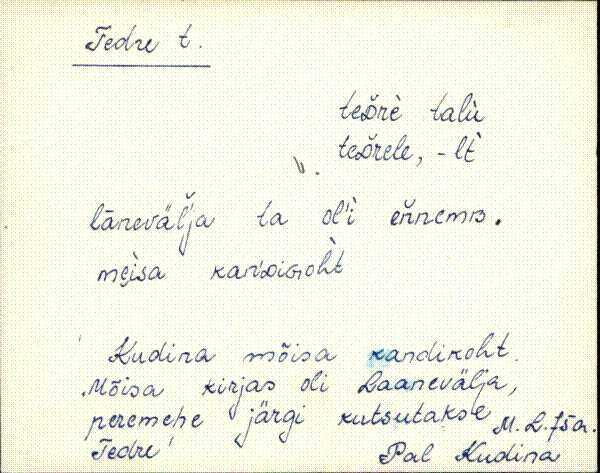 Tedre t.
teᴅ̆rè talù
teᴅ̆rele, -lt̀
lānevälja ta ol'i en̆nemʙ.
mɐ̀isa kanᴅiɢoh̀t
Kudina mõisa kandikoht.
Mõisa kirjas oli Laanevälja,
peremehe järgi kutsutakse M. L. 75a.
Tedre' Pal Kudina